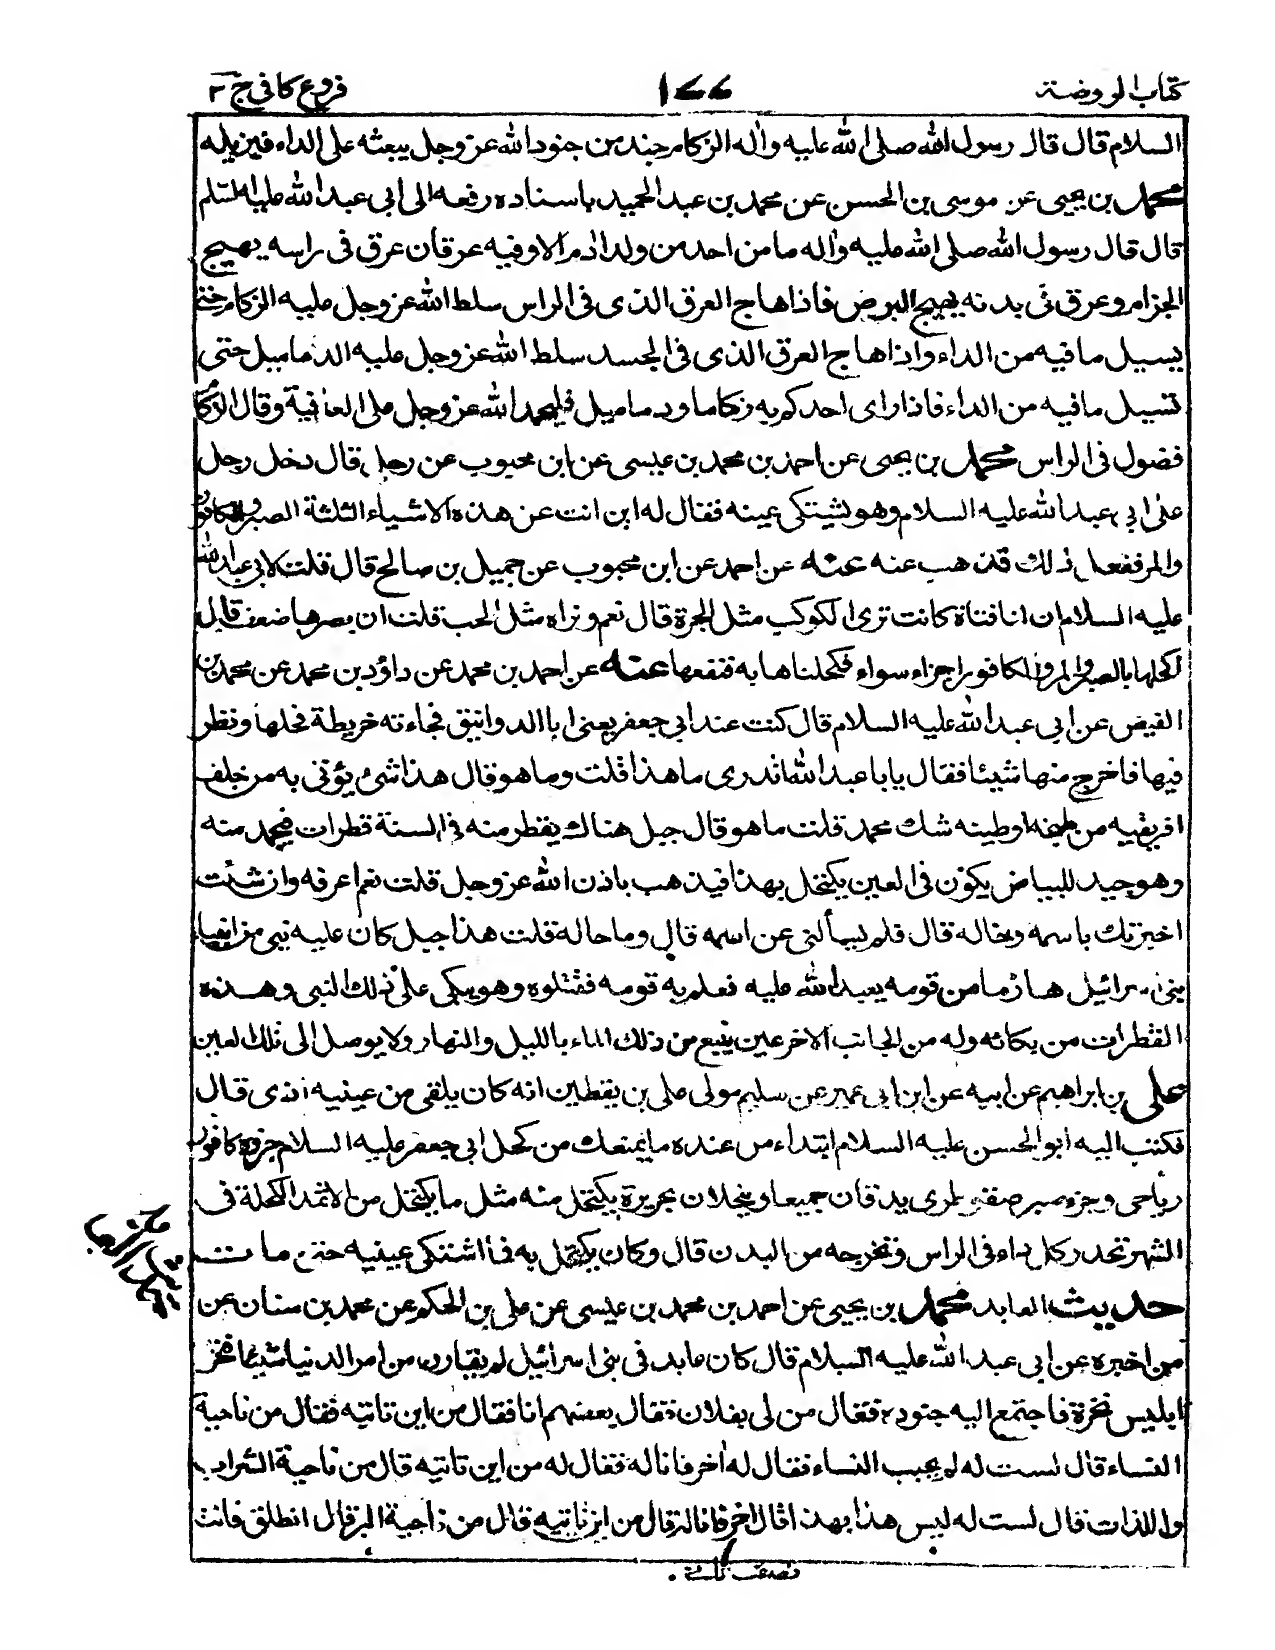 كتاب الروضة ١٧٧ فروع كافي ج ٣
السلام قال قال رسول الله صلى الله عليه واله الزكام جند من جنود الله عز وجل يبعثه على الداء فيزيله
محمد بن يحيى عن موسى بن الحسن عن محمد بن عبد الحميد باسناده رفعه الى ابى عبد الله عليه السلم
قال قال رسول الله صلى الله عليه واله ما من احد من ولد ادم الا وفيه عرقان عرق فى راسه يهيج
الجزام وعرق فى بدنه يهيج البرص فاذا هاج العرق الذى فى الراس سلط الله عز وجل عليه الزكام حتى
يسيل ما فيه من الداء واذا هاج العرق الذى فى الجسد سلط الله عز وجل عليه الدماميل حتى
تسيل ما فيه من الداء فاذا راى احدكم به زكاما ودماميل فليحمد الله عز وجل على العافية وقال الزكام
فضول فى الراس محمد بن يحيى عن احمد بن محمد بن عيسى عن ابن محبوب عن رجل قال دخل رجل
على ابى عبد الله عليه السلام وهو يشتكى عينه فقال له اين انت عن هذه الاشياء الثلثة الصبر والكافور
والمر ففعل ذلك فذهب عنه عنه عن احمد عن ابن محبوب عن جميل بن صالح قال قلت لابى عبد الله
عليه السلام ان لنا فتاة كانت ترى الكوكب مثل الجرة قال نعم وتراه مثل الحب قلت ان بصرها ضعف قال
اكحلها بالصبر والمر والكافور اجزاء سواء فكحلناها به فنفعها عنه عن احمد بن محمد عن داؤد بن محمد عن محمد بن
الفيض عن ابى عبد الله عليه السلام قال كنت عند ابى جعفر يعنى ابا الدوانيق فجاءته خريطة فحلها ونظر
فيها فاخرج منها شيئا فقال يابا عبد الله اتدرى ما هذا قلت وما هو قال هذا شئ يؤتى به من خلف
افريقيه من طنجه او طبنه شك محمد قلت ما هو قال جبل هناك يقطر منه فى السنة قطرات فيجمد منه
وهو جيد للبياض يكون فى العين يكتحل بهذا فيذهب باذن الله عز وجل قلت نعم اعرفه وان شئت
اخبرتك باسمه وبحاله قال فلم يسألنى عن اسمه قال وما حاله قلت هذا جبل كان عليه نبى من انبياء
بنى اسرائيل هاربا من قومه يعبد الله عليه فعلم به قومه فقتلوه وهو يبكى على ذلك النبى وهذه
القطرات من بكائه وله من الجانب الاخر عين ينبع من ذلك الماء بالليل والنهار ولا يوصل الى تلك العين
على بن ابراهيم عن ابيه عن ابن ابى عمير عن سليم مولى على بن يقطين انه كان يلقى من عينيه اذى قال
فكتب اليه ابو الحسن عليه السلام ابتداء من عنده ما يمنعك من كحل ابى جعفر عليه السلام جزء كافور
رياحى وجزء صبر صقوطرى يدقان جميعا وينخلان بحريرة يكتحل منه مثل ما يكتحل من الاثمد الكحلة فى
الشهر تحدر كل داء فى الراس وتخرجه من البدن قال وكان يكتحل به فما اشتكى عينيه حتى مات
حديث العابد محمد بن يحيى عن احمد بن محمد بن عيسى عن على بن الحكم عن محمد بن سنان عن
من اخبره عن ابى عبد الله عليه السلام قال كان عابد فى بنى اسرائيل لم يقارف من امر الدنيا شيئا فنخر
ابليس نخرة فاجتمع اليه جنوده فقال من لى بفلان فقال بعضهم انا فقال من اين تاتيه فقال من ناحية
النساء قال لست له لم يجب النساء فقال له اخر فانا له فقال له من اين تاتيه قال من ناحية الشراب
واللذات قال لست له ليس هذا بهذا قال اخر فانا له قال من اين تاتيه قال من ناحية البر قال انطلق فانت